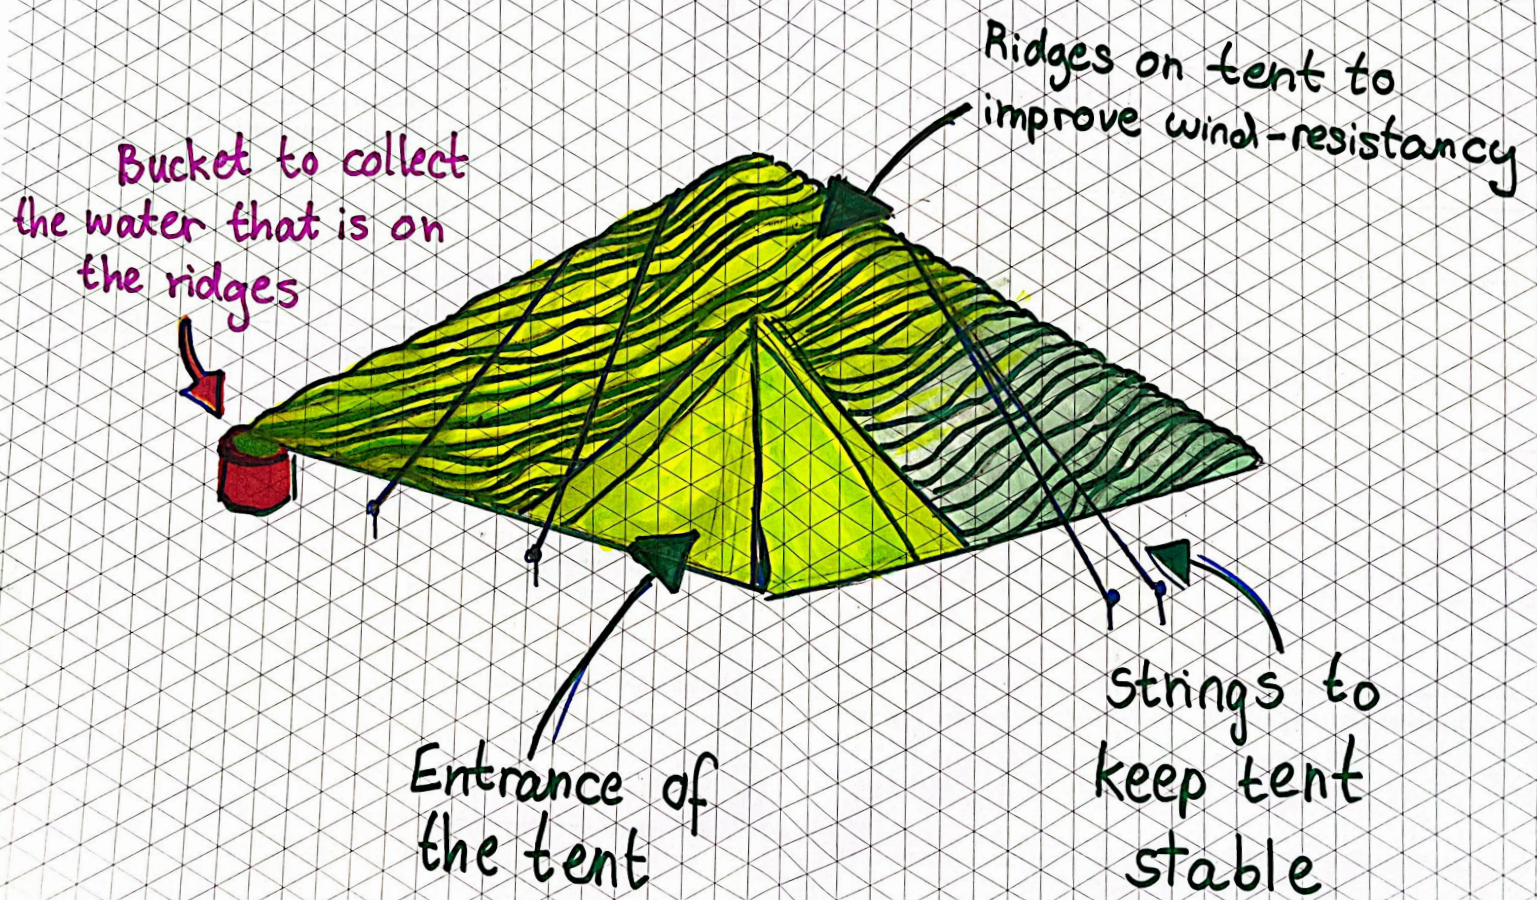 Ridges on tent to
improve wind-resistancy
Bucket to collect
the water that is on
the ridges
Entrance of
the tent
strings to
keep tent
stable